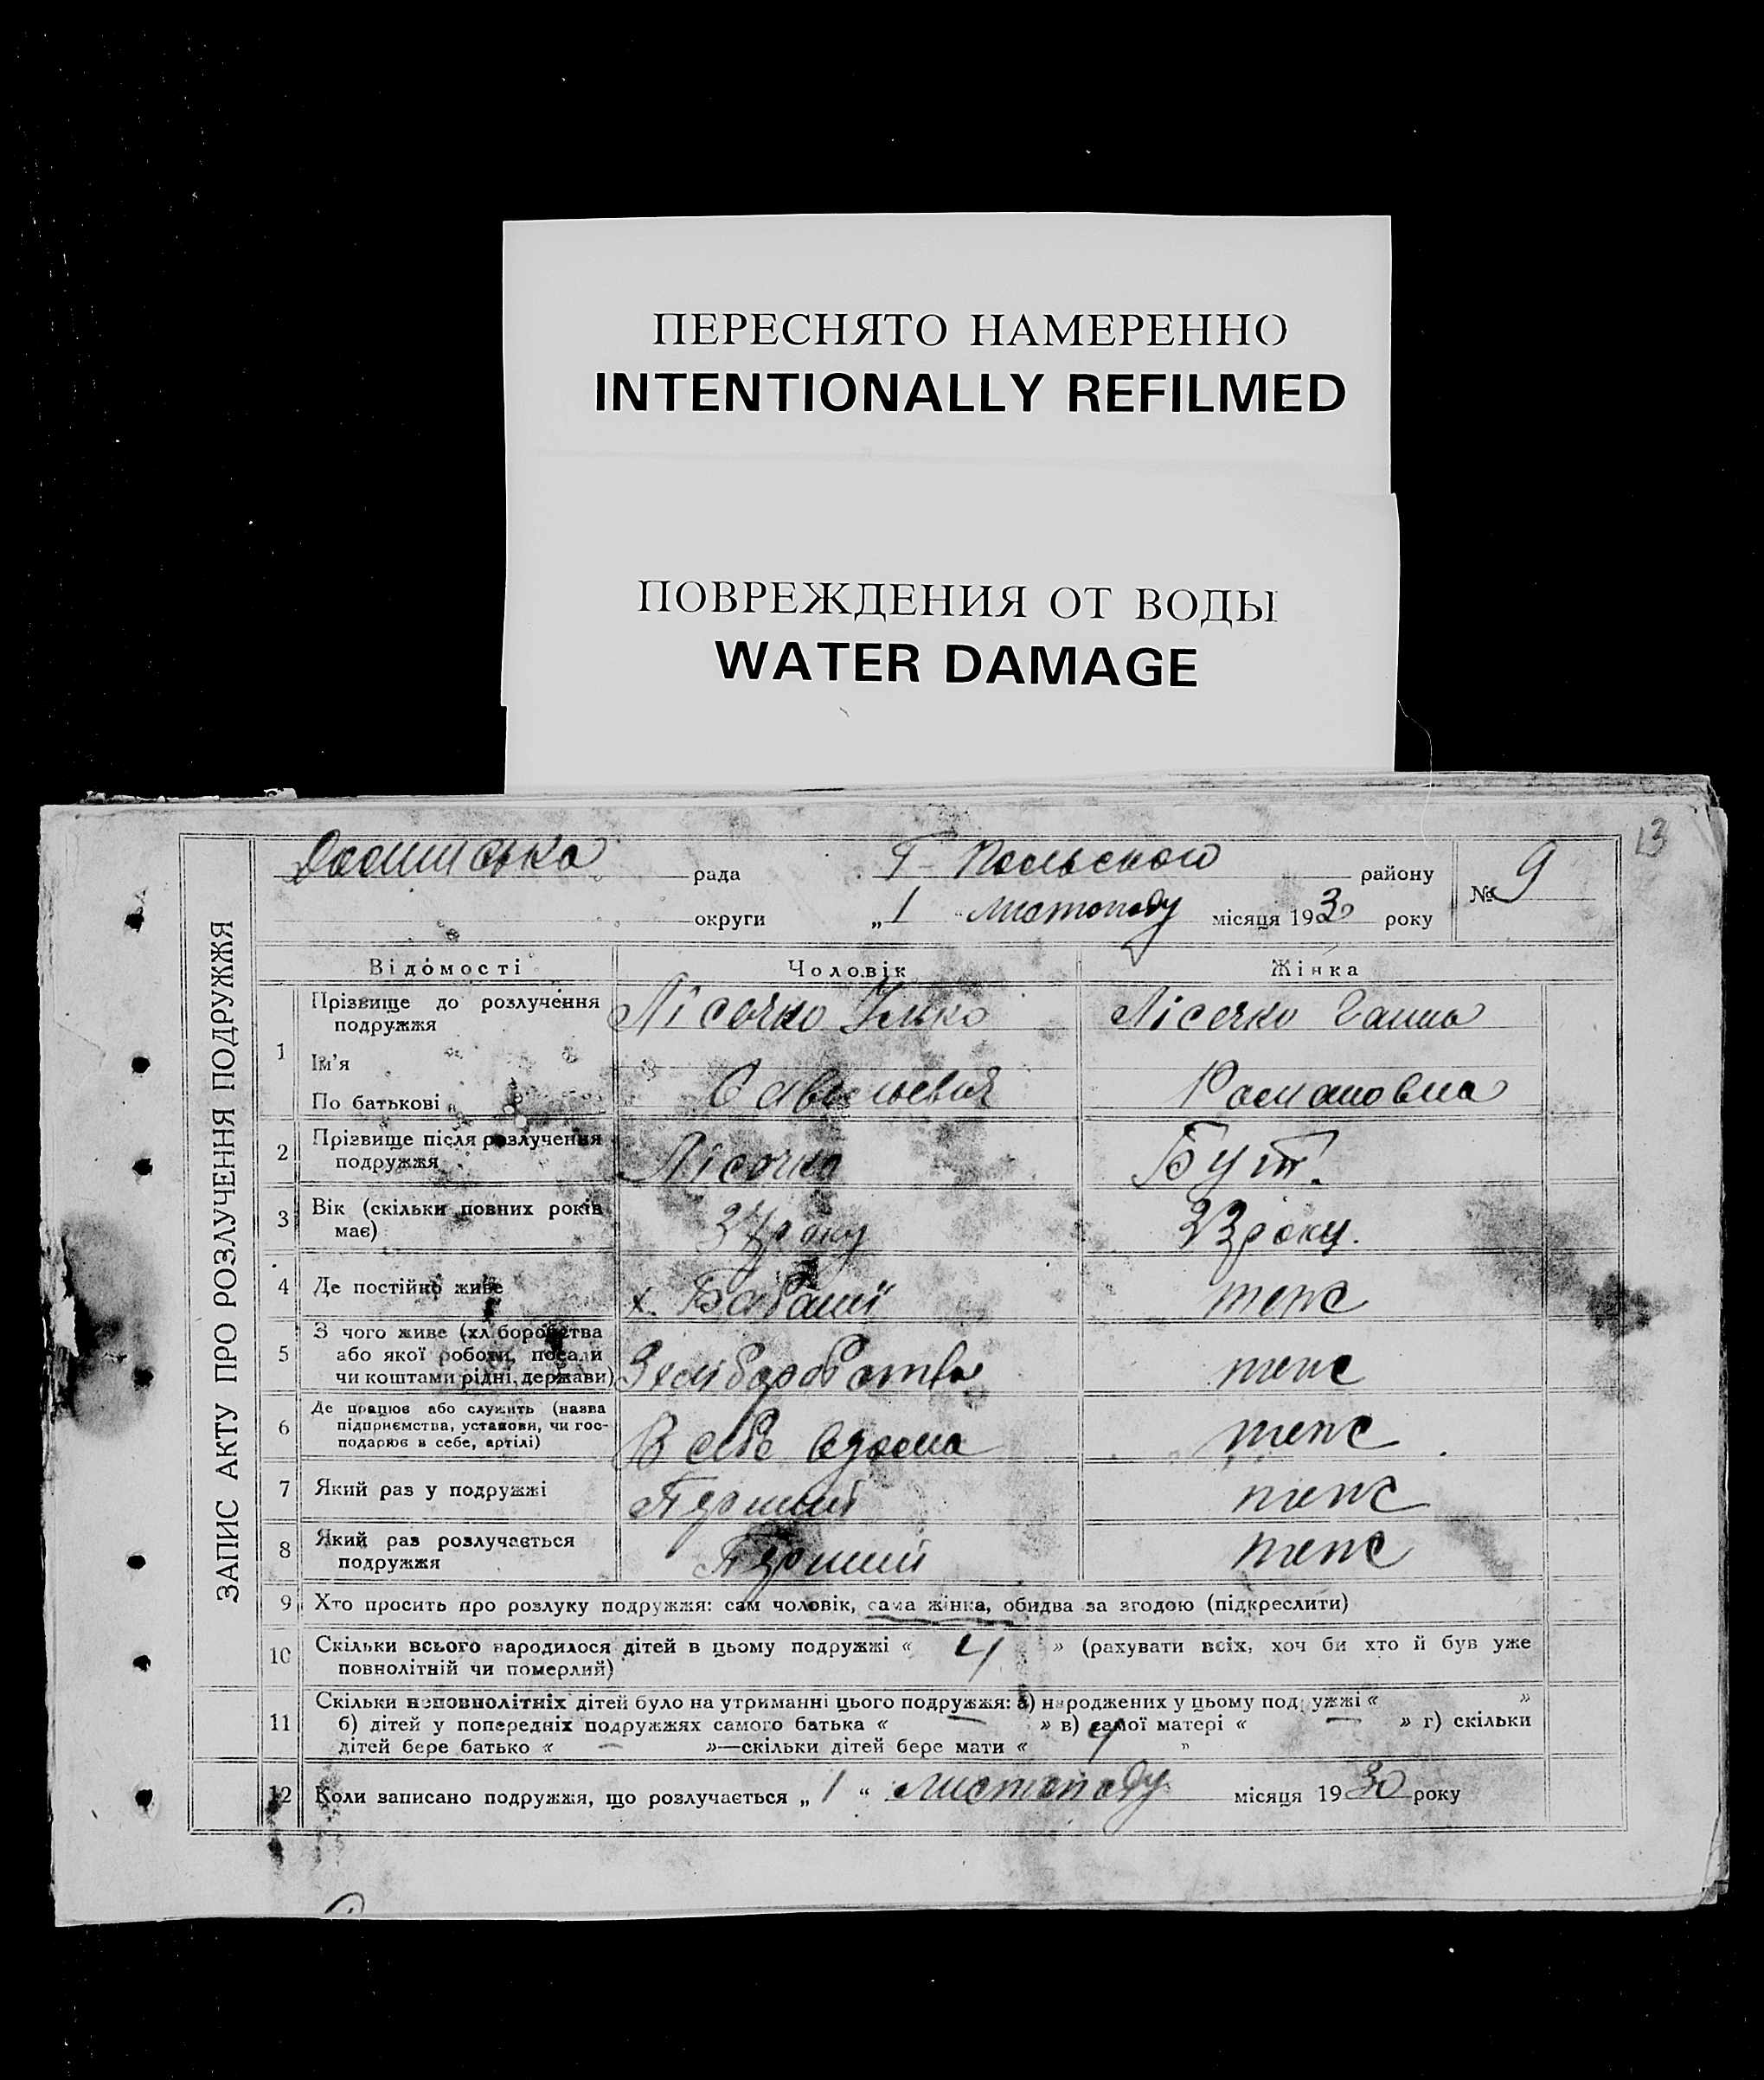 ПЕРЕСНЯТО НАМЕРЕННО
INTENTIONALLY REFILMED
ПОВРЕЖДЕНИЯ ОТ ВОДЫ
WATER DAMAGE
13
ЗАПИС АКТУ ПРО РОЗЛУЧЕННЯ ПОДРУЖЖЯ
рада Г- Польського району № 9
округи „1" листопаду місяця 1930 року
Відомості Чоловік Жінка
1 Прізвище до розлучення подружжя Лісочко Ілько Лісочко Ганна
Ім'я
По батькові Савельевич Романовна
2 Прізвище після розлучення подружжя Лісочко Бут.
3 Вік (скільки повних років має) року 23 року.
4 Де постійно живе х. теж
5 З чого живе (хліборобства або якої роботи, посади чи коштами рідні, держави) З хліборобства теж
6 Де працює або служить (назва підприємства, установи, чи господарює в себе, артілі) В себе вдома теж
7 Який раз у подружжі Перший теж
8 Який раз розлучається подружжя Перший теж
9 Хто просить про розлуку подружжя: сам чоловік, сама жінка, обидва за згодою (підкреслити)
10 Скільки всього народилося дітей в цьому подружжі « 4 » (рахувати всіх, хоч би хто й був уже
повнолітній чи померлий)
11 Скільки неповнолітніх дітей було на утриманні цього подружжя: а) народжених у цьому подружжі « »
б) дітей у попередніх подружжях самого батька « — » в) самої матері « — » г) скільки
дітей бере батько « — »—скільки дітей бере мати « 4 »
12 Коли записано подружжя, що розлучається „ 1 “ листопаду місяця 1930 року